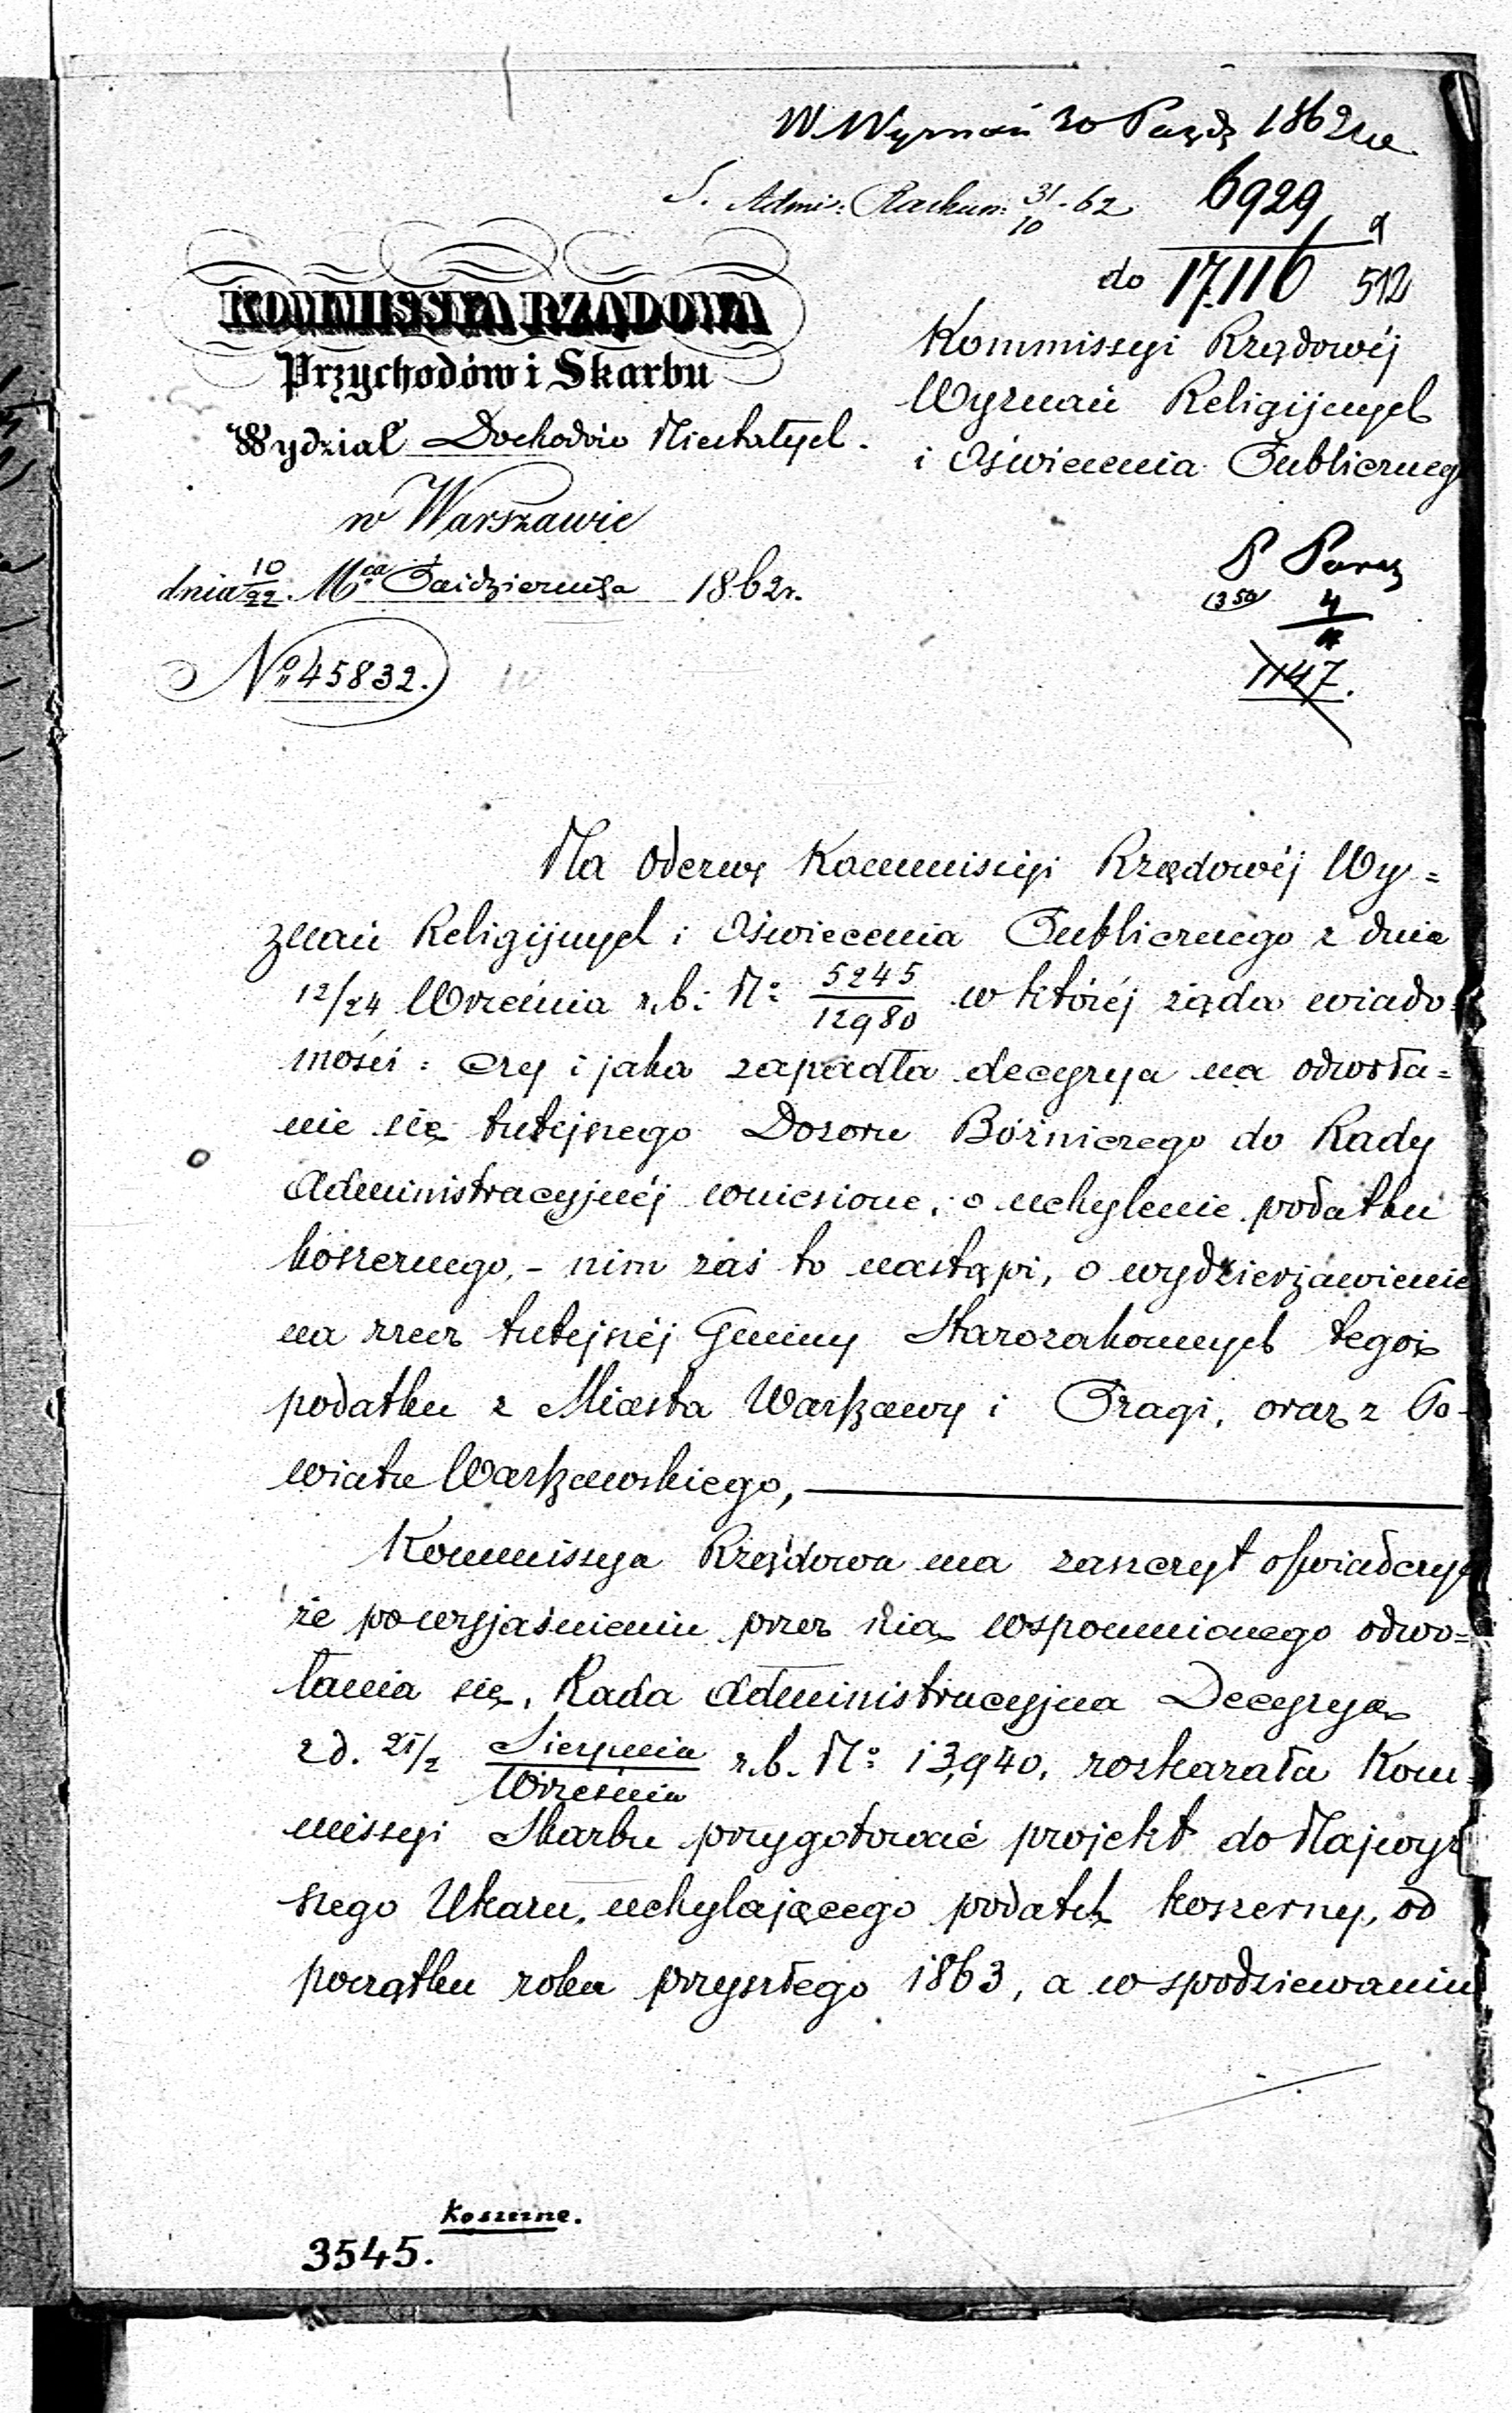 W. Wyznań 30 Paźdz 1862 r.
S. Admi: Rachun: 31/10 - 62 6929
do 17116 512
KOMMISSYA RZĄDOWA
Przychodów i Skarbu
Wydział Dochodów Niestałych.
w Warszawie
dnia 10/22 Mca Października 1862 r.
No 45832.
Kommissyi Rządowéj
Wyznań Religijnych
i Oświecenia Publiczneg
P
4
1147.
Na odezwę Kommissyi Rządowéj Wy=
znań Religijnych i Oświecenia Publicznego z dnia
12/24 Września r. b. No 5245/12980 w któréj żąda wiado=
mości: czy i jaka zapadła decyzya na odwoła=
nie się tutejszego Dozoru Bóżniczego do Rady
Administracyjnéj wniesione, o uchylenie podatku
koszernego, – nim zaś to nastąpi, o wydzierżawienie
na rzecz tutejszéj Gminy Starozakonnych tegoż
podatku z Miasta Warszawy i Pragi, oraz z Po-
wiatu Warszawskiego,
Kommissya Rządowa ma zaszczyt oświadczyć
że po wyjaśnieniu przez nią wspomnionego odwo=
łania się, Rada Administracyjna Decyzyą
z d. 21/2 Sierpnia/Września r. b. No 13,940, rozkazała Kom=
missyi Skarbu przygotować projekt do Najwyż
szego Ukazu, uchylającego podatek koszerny, od
początku roku przyszłego 1863, a w spodziewaniu
Koszerne.
3545.